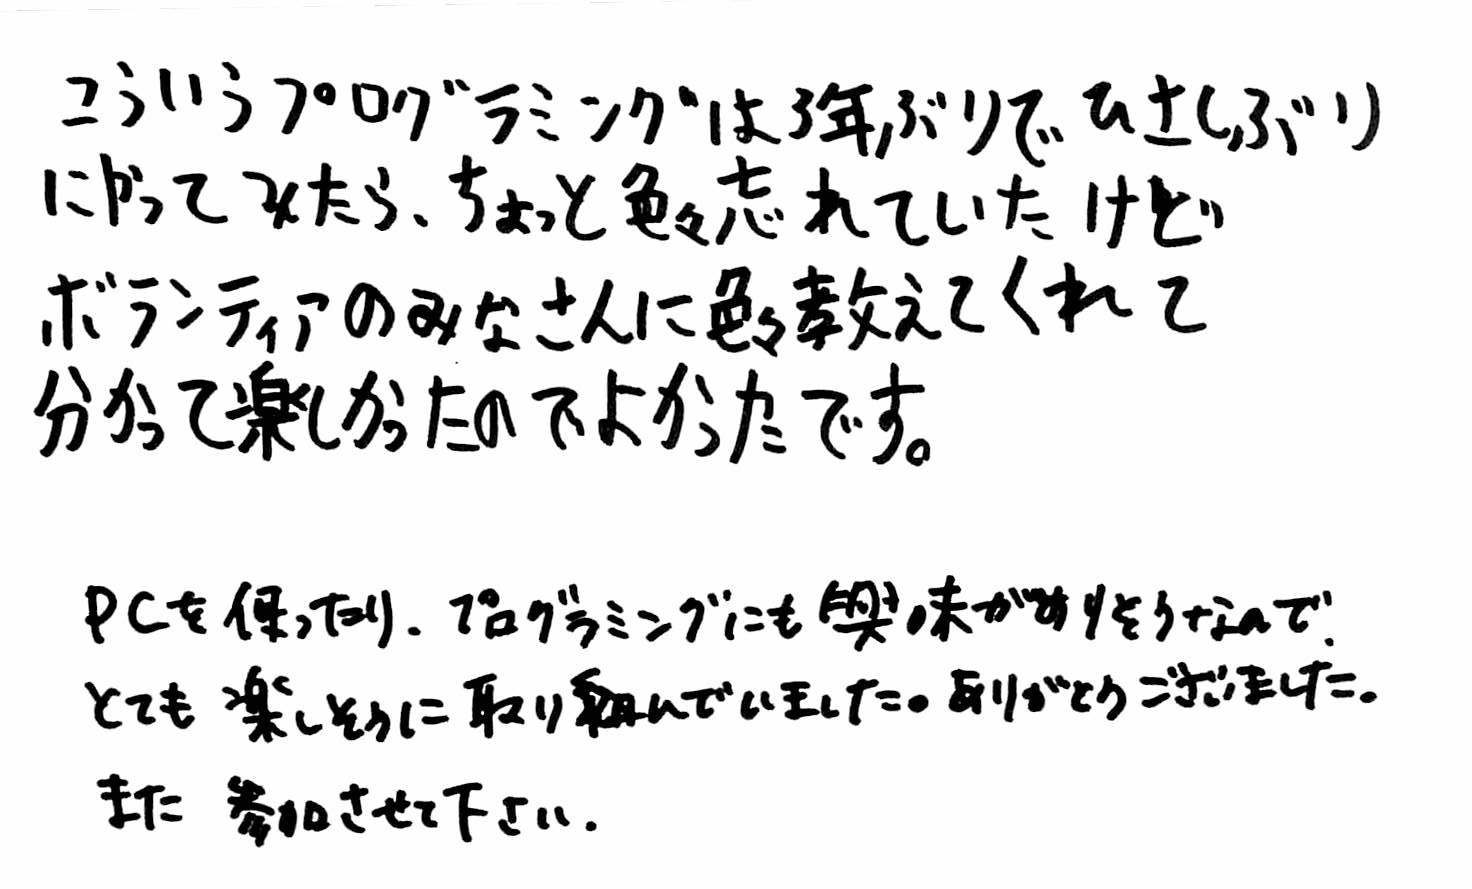 こういうプログラミングは3年ぶりでひさしぶり
にやってみたら、ちょっと色々忘れていたけど
ボランティアのみなさんに色々教えてくれて
分かって楽しかったのでよかったです。
PCを使ったり、プログラミングにも興味がありそうなので、
とても楽しそうに取り組んでいました。ありがとうございました。
また参加させて下さい.